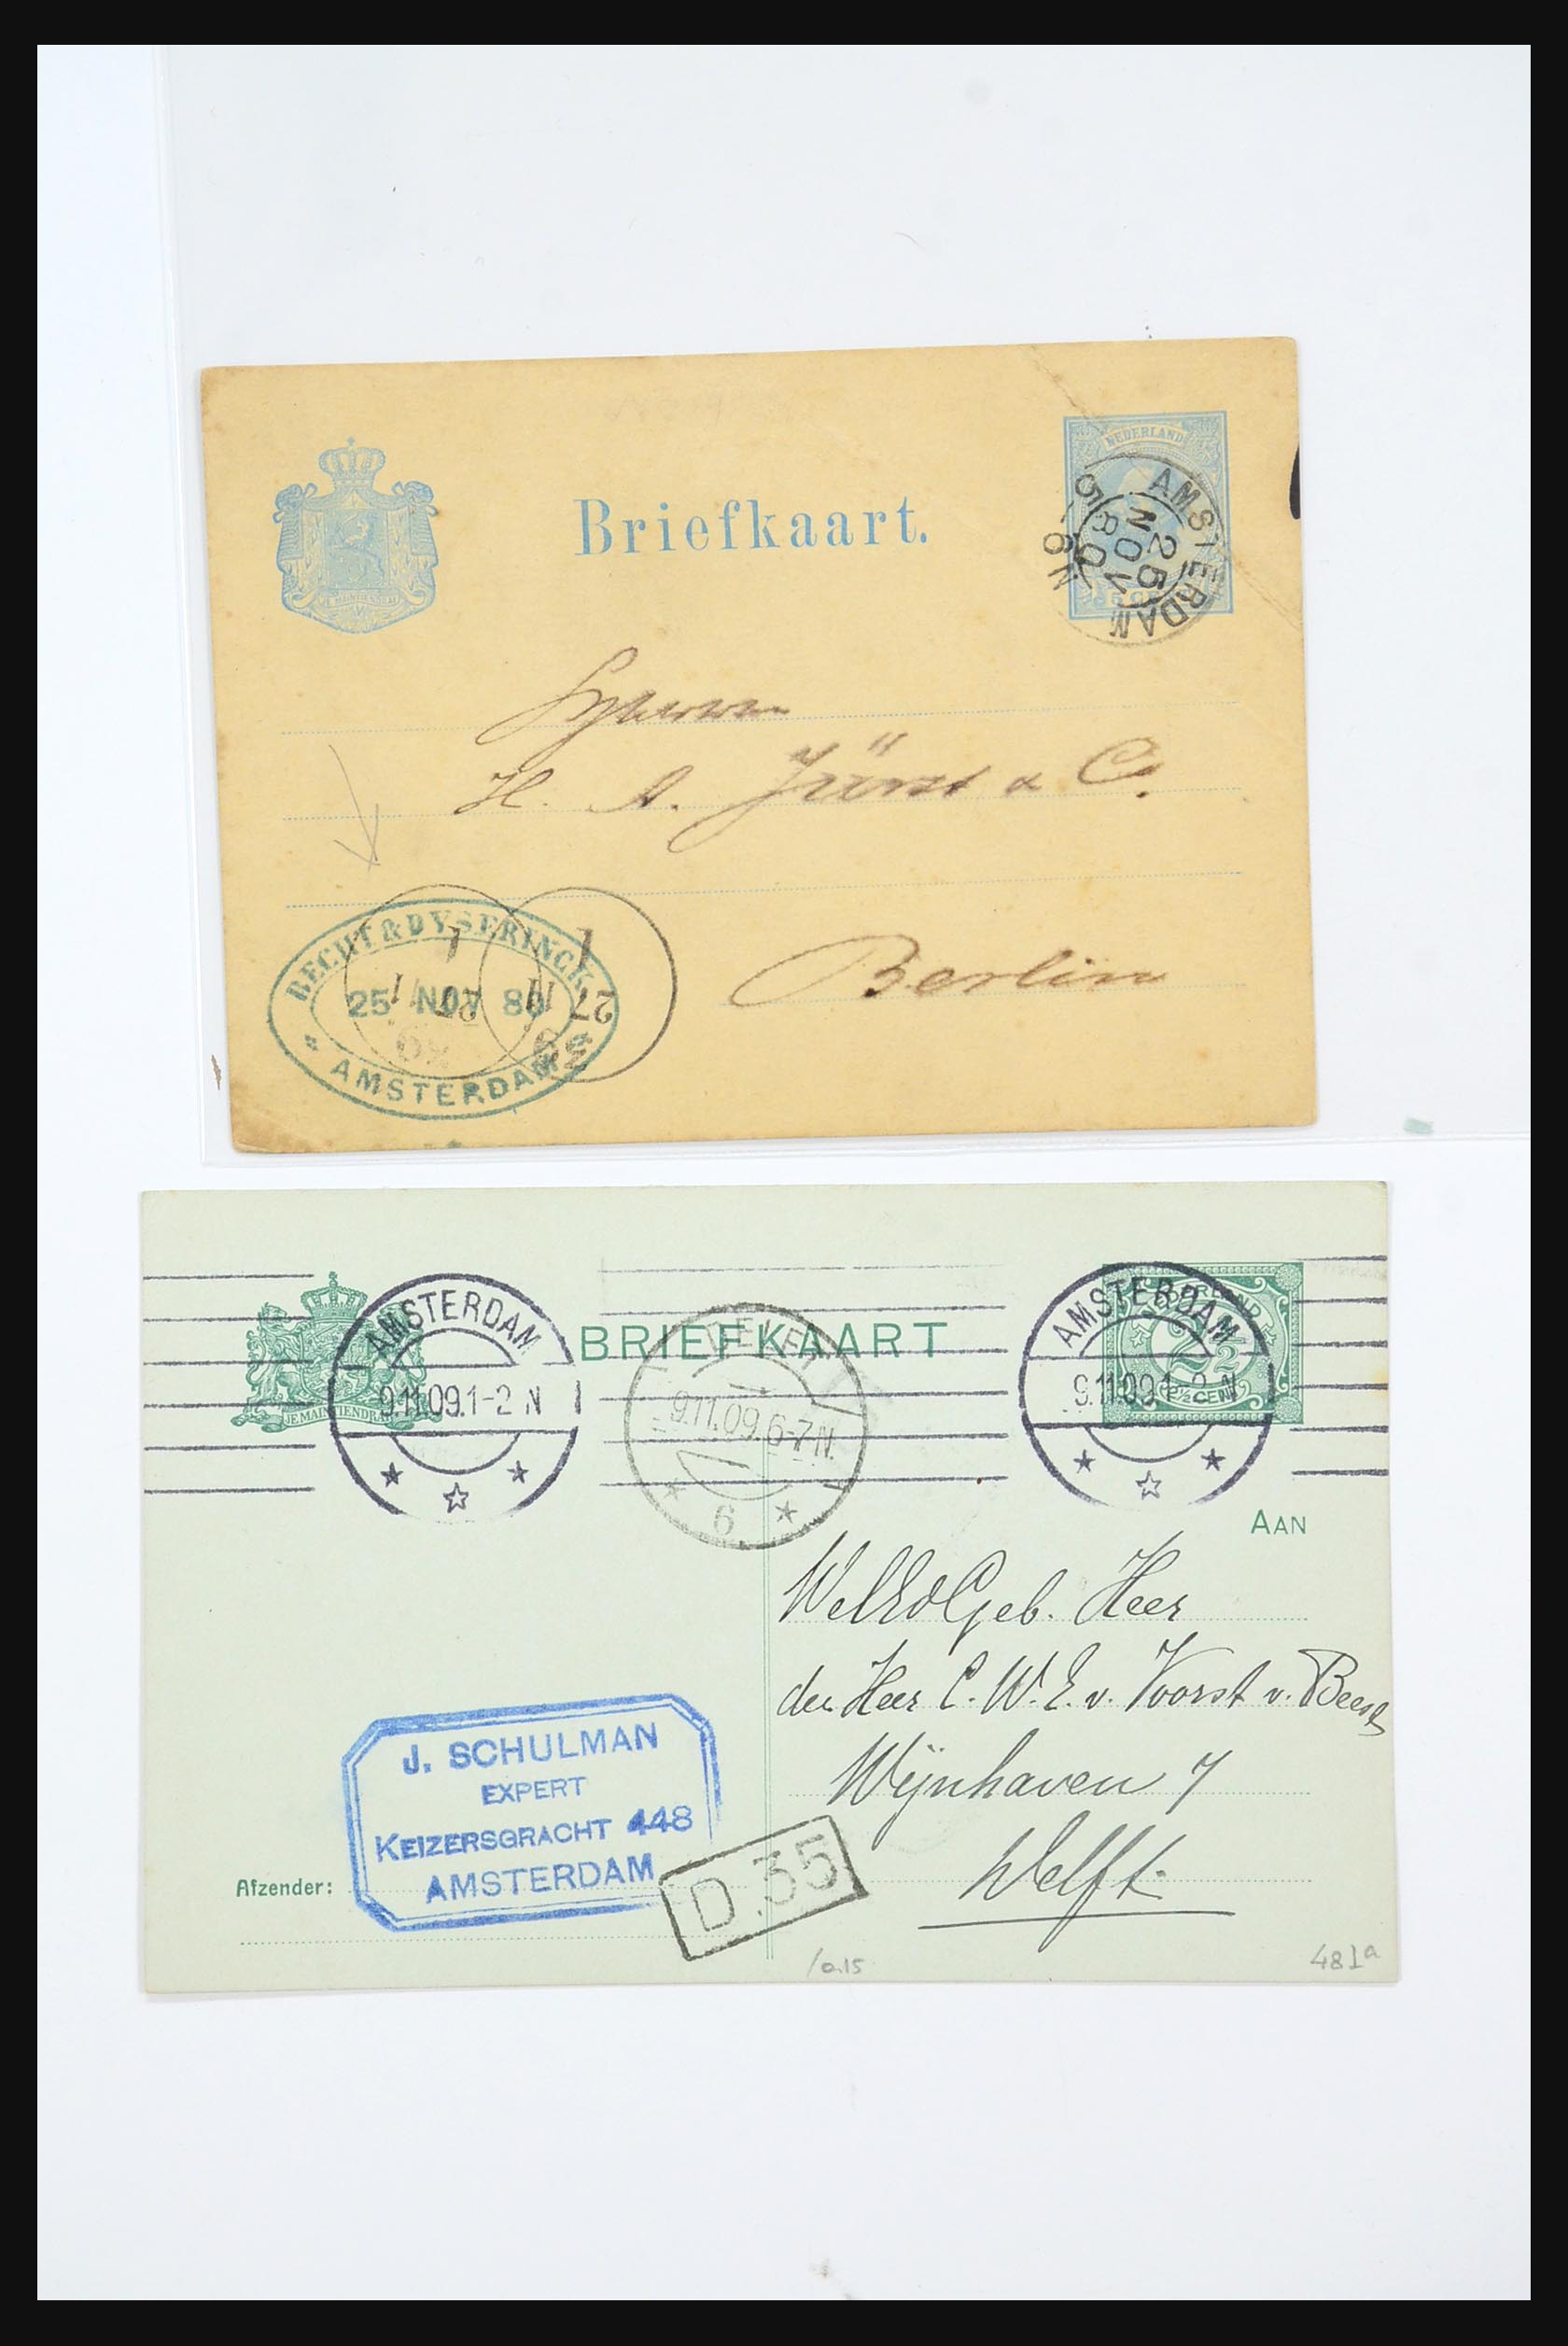 Briefkaart.
NEDERLAND
AMSTERDAM
25
NOV
80
5-6N
H. A. Jürst & C°.
Berlin
BECHT & DYSERINCK
25 NOV 80
AMSTERDAM
27 11
BRIEFKAART
JE MAINTIENDRAI
AMSTERDAM
9.11.09.1-2 N
DELFT
9.11.09.6-7 N.
6
AMSTERDAM
9.11.09.1-2 N
2½ CENT
AAN
WelEdGeb. Heer
den Heer C. W. E. v. Voorst v. Beest
Wijnhaven 7
Delft.
J. SCHULMAN
EXPERT
KEIZERSGRACHT 448
AMSTERDAM
Afzender:
D.35
/0.15
481a